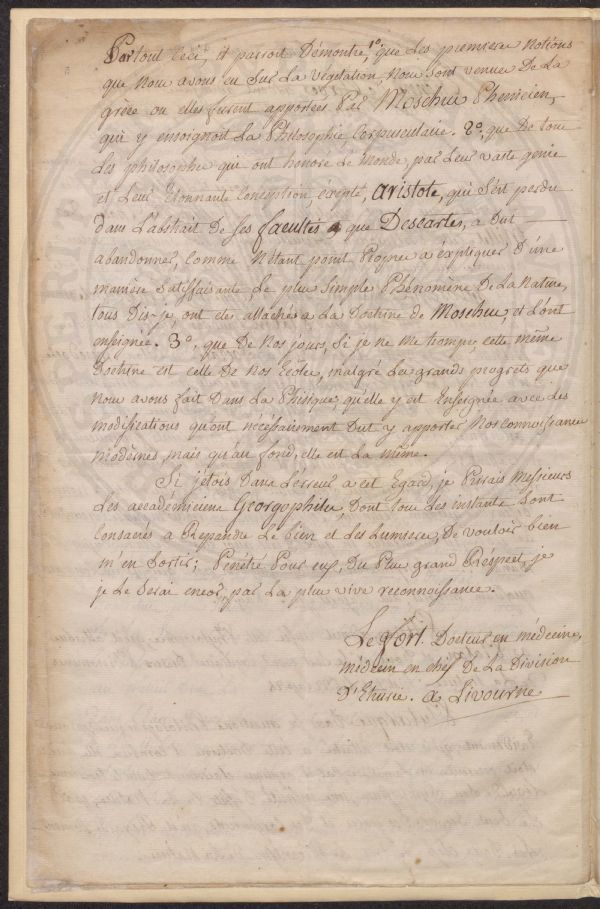 Partout Ceci, il paroit Démontré, 1º. que Les premieres Notions
que Nous avons eu Sur La végétation Nous Sont venues De La
grèce ou elles furent apportées Par Moschus Phenicien,
qui y enseignoit La Philosophie Corpusculaire. 2º. que De tous
Les philosophes qui ont honoré Le Monde, par Leur vaste genie
et Leur Etonnante Conception, excepté, aristote, qui S'est perdu
dans L'abstrait De Ses facultés, que Descartes, a Dut
abandonner, Comme N'étant point Propres a éxpliquer D'une
maniere Satisfaisante, Le plus Simple Phénomène De La Nature,
tous Dis-je, ont eté attachés a La Doctrine de Moschus, et L'ont
enseignée. 3º. que De Nos jours, Si je ne Me trompe, cette même
Doctrine est celle De Nos Ecôles, malgré Les grands progrets que
Nous avons fait Dans La Phisique, qu'elle y est Enseignée avec des
modifications qu'ont nécéssairement Dut y apporter Nos connoissances
modernes, mais qu'au fond, elle est La même.
Si j'etois Dans L'erreur a cet Egard, je Prirais Messieurs
Les accadémiciens Georgophiles, Dont tous Les instants Sont
Consacrés a Rependre Le bien et Les Lumieres, De vouloir bien
m'en Sortir; Pénétré Pour eux, Du Plus grand Réspect, je
je Le Serai encor, par La plus vive reconnoissance.
Le fort. Docteur en médecine,
médecin en chef De La Division
D'Etrurie. a Livourne